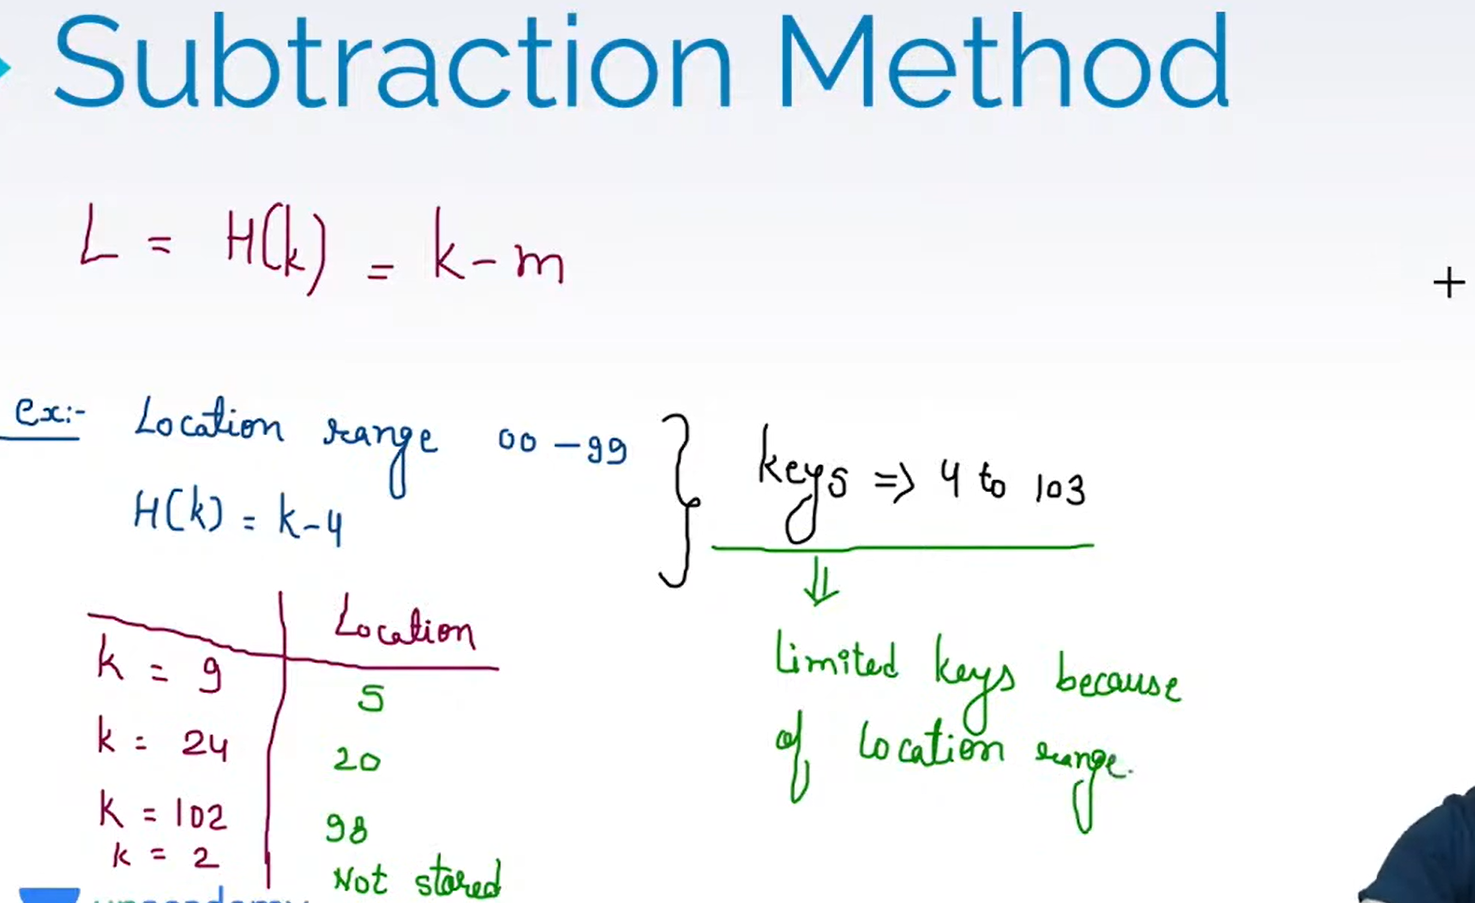 Subtraction Method
L = H(k) = k - m
ex:- Location range 00 - 99
H(k) = k - 4
keys => 4 to 103
Limited keys because
of location range.
Location
k = 9 5
k = 24 20
k = 102 98
k = 2 Not stored